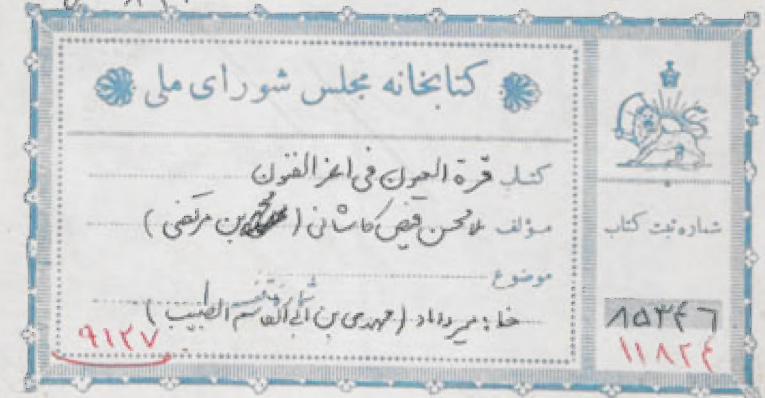 کتابخانه مجلس شورای ملی
کتاب قرة العیون فی اعز الفنون
مؤلف ملا محسن فیض کاشانی (محمد بن مرتضی)
موضوع
میرداماد (مهدی بن ابی القاسم الطبیب)
۹۱۲۷
شماره ثبت کتاب
۸۵۳۴۶
۱۱۸۲۴